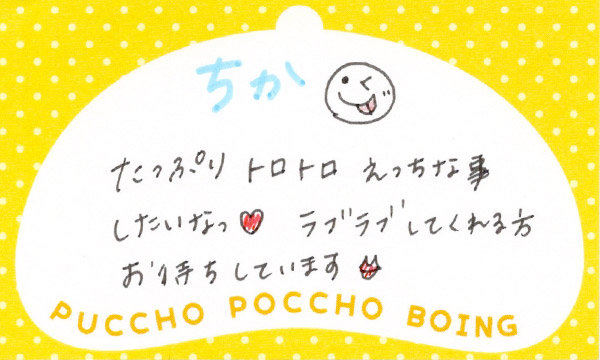 ちか
たっぷり トロトロ えっちな事
したいなっ♥ ラブラブしてくれる方
お待ちしています
PUCCHO POCCHO BOING